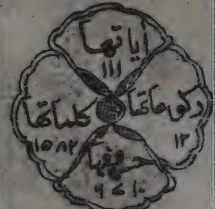 اياتها
١١١
ركوعاتها
١٢
كلماتها
١٥٨٢
حروفها